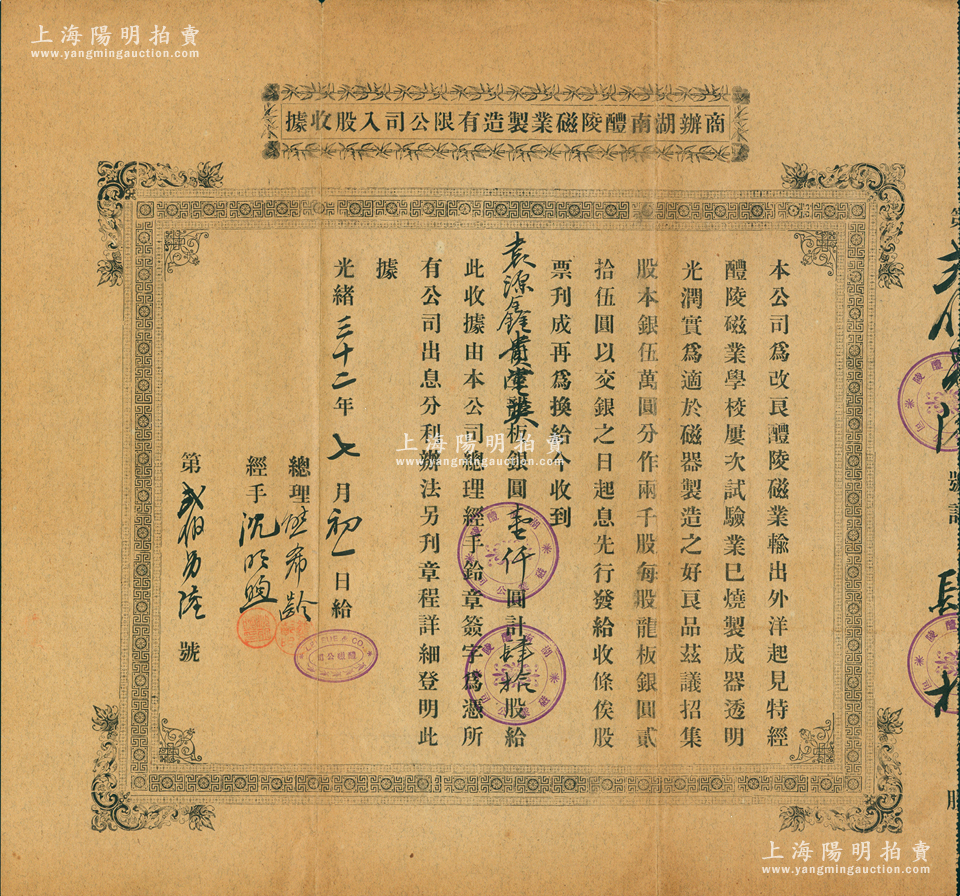 上海陽明拍賣
www.yangmingauction.com
商辦湖南醴陵磁業製造有限公司入股收據
本公司爲改良醴陵磁業輸出外洋起見特經
醴陵磁業學校屢次試驗業巳燒製成器透明
光潤實爲適於磁器製造之好良品茲議招集
股本銀伍萬圓分作兩千股每股龍板銀圓貳
拾伍圓以交銀之日起息先行發給收條俟股
票刋成再爲換給今收到
袁源鑫 板銀圓壹仟圓計肆拾股給
此收據由本公司總理經手鈴章簽字爲憑所
有公司出息分利辦法另刋章程詳細登明此
據
光緒三十二年七月初一日給
總理熊希齡
經手沈明煦
第貳佰另陸號
上海陽明拍賣
www.yangmingauction.com
肆
拾
股
上海陽明拍賣
www.yangmingauction.com